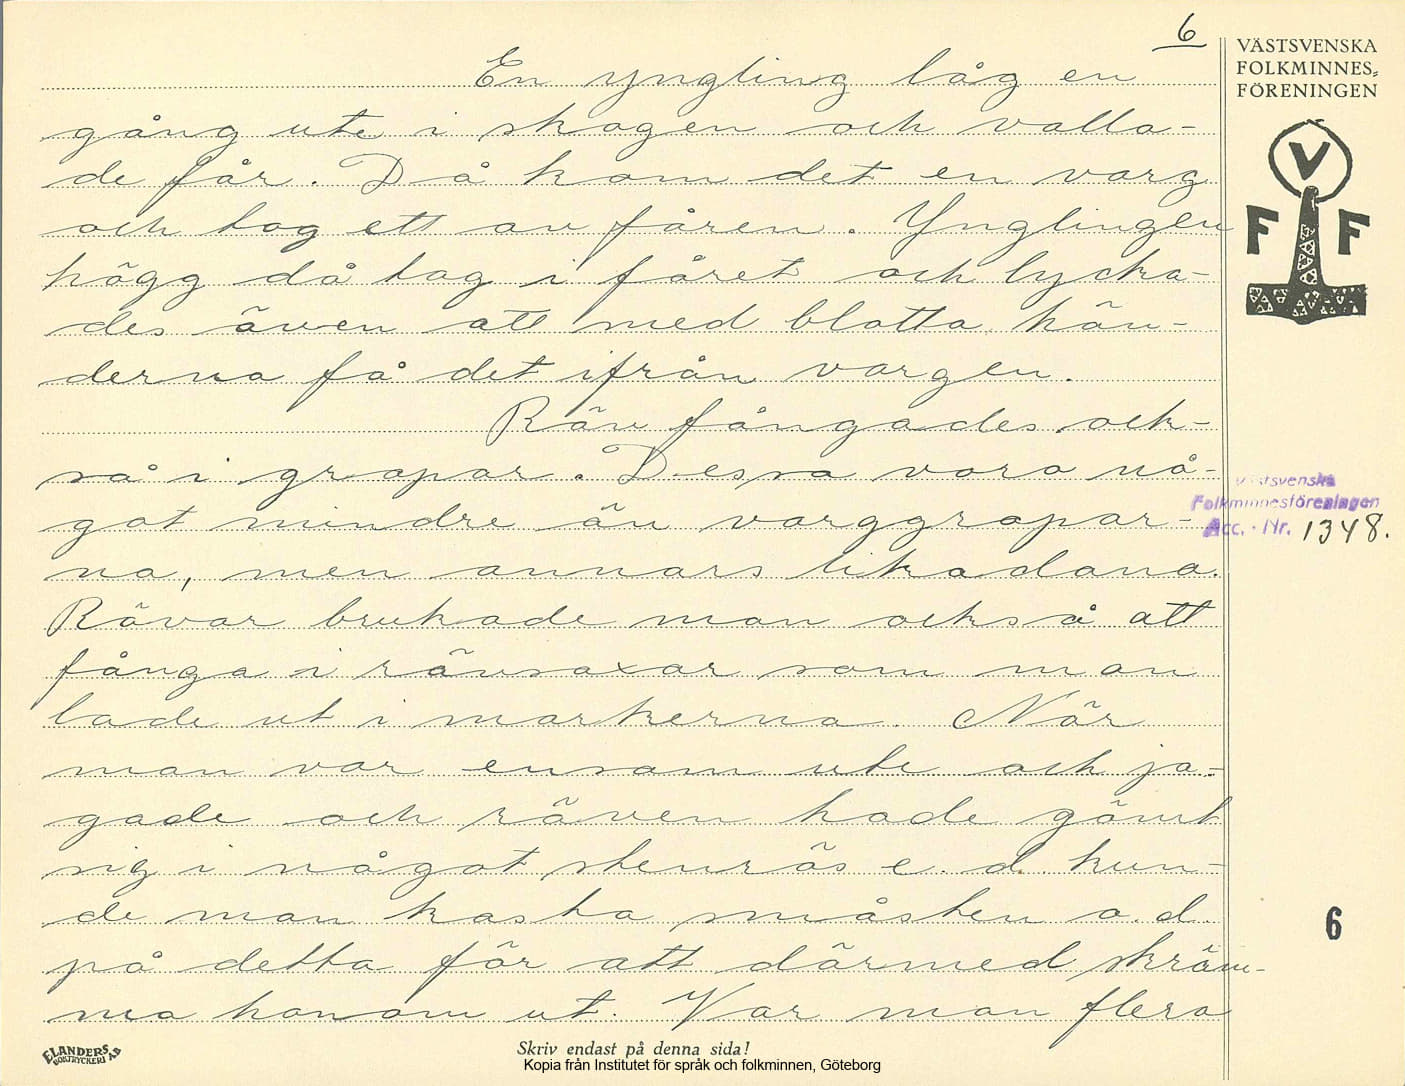 6
VÄSTSVENSKA
FOLKMINNES-
FÖRENINGEN
V
F F
En yngling låg en
gång ute i skogen och valla-
de får. Då kom det en varg
och tog ett av fåren. Ynglingen
högg då tag i fåret och lycka-
des även att med blotta hän-
derna få det ifrån vargen.
Räv fångades ock-
så i gropar. Dessa voro nå-
got mindre än varggropar-
na, men annars likadana.
Rävar brukade man också att
fånga i rävsaxar som man
lade ut i markerna. När
man var ensam ute och ja-
gade och räven hade gömt
sig i något stenrös e. d. kun-
de man kasta småsten o. d.
på detta för att därmed skräm-
ma honom ut. Var man flera
Västsvenska
Folkminnesföreningen
Acc. - Nr. 1348.
6
ELANDERS
BOKTRYCKERI AB
Skriv endast på denna sida!
Kopia från Institutet för språk och folkminnen, Göteborg